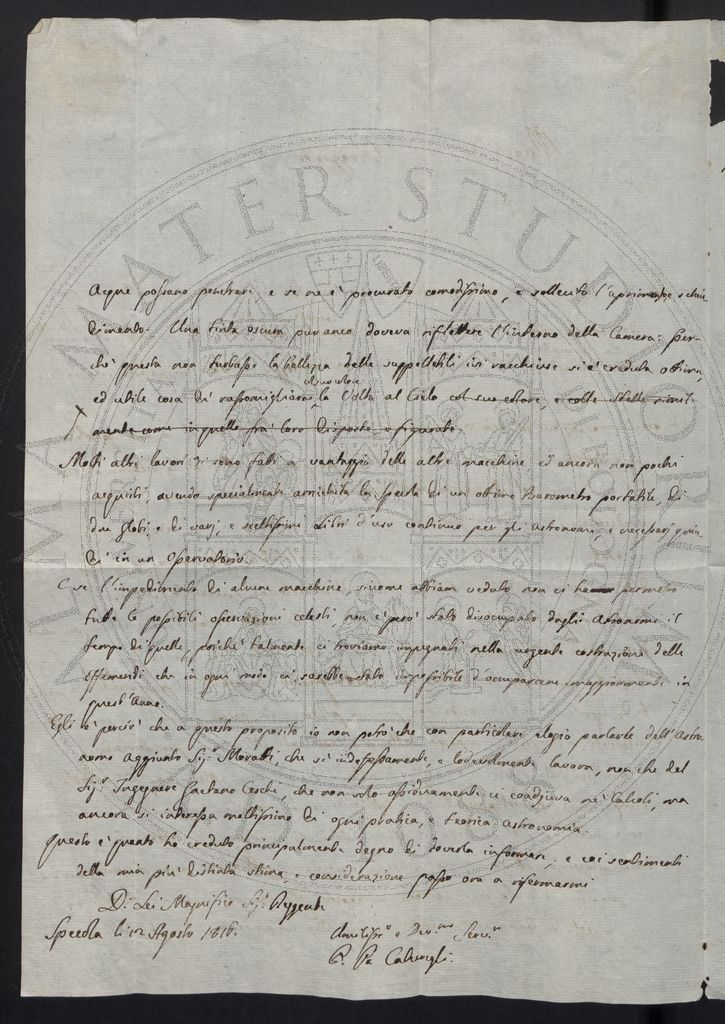 Acque possano penetrare e se ne è procurato comodissimo, e sollecito l'aprimento e chiu
dimento. Una tinta oscura pur anco doveva riflettere l'interno della Camera: per-
chè questa non turbasse la bellezza delle suppellettili ivi racchiuse si è creduta ottima,
ed utile cosa di rassomigliare la Volta al Cielo col suo colore, e colle Stelle simil
mente come in quelle fra loro disposte e figurate.
Molti altri lavori si sono fatti a vantaggio delle altre macchine ed ancora non pochi
acquisti, avendo specialmente arricchita la Specola di un ottimo Barometro portatile, di
due globi e di varj, e sceltissimi Libri d'uso continuo per gli Astronomi, e necessarj quin
di in un Osservatorio.
E se l'impedimento di alcune macchine, siccome abbiam veduto non ci ha permesso
tutte le possibili osservazioni celesti non è però stato disoccupato dagli Astronomi il
tempo di quelle, poichè talmente ci troviamo impegnati nella urgente costruzione delle
Effemeridi che in ogni modo ci sarebbe stato impossibile d'occuparcene maggiormente in
quest'Anno.
Egli è perciò che a questo proposito io non potrò che con particolare elogio parlarle dell'Astro
nomo Aggiunto Sig.r Moratti, che sì indefessamente, e lodevolmente lavora, non che del
Sig.r Ingegnere Gaetano Ceschi, che non solo assiduamente ci coadjuva ne' Calcoli, ma
ancora si interessa moltissimo di ogni pratica, e teorica astronomia.
Questo è quanto ho creduto principalmente degno di doverla informare, e coi sentimenti
della mia più distinta stima, e considerazione passo ora a rifermarmi
Di Lei Magnifico Sig.r Reggente
Specola li 12 Agosto 1816.
Umiliss.o e Dev.mo Serv.r
P. Pr. Caturegli.